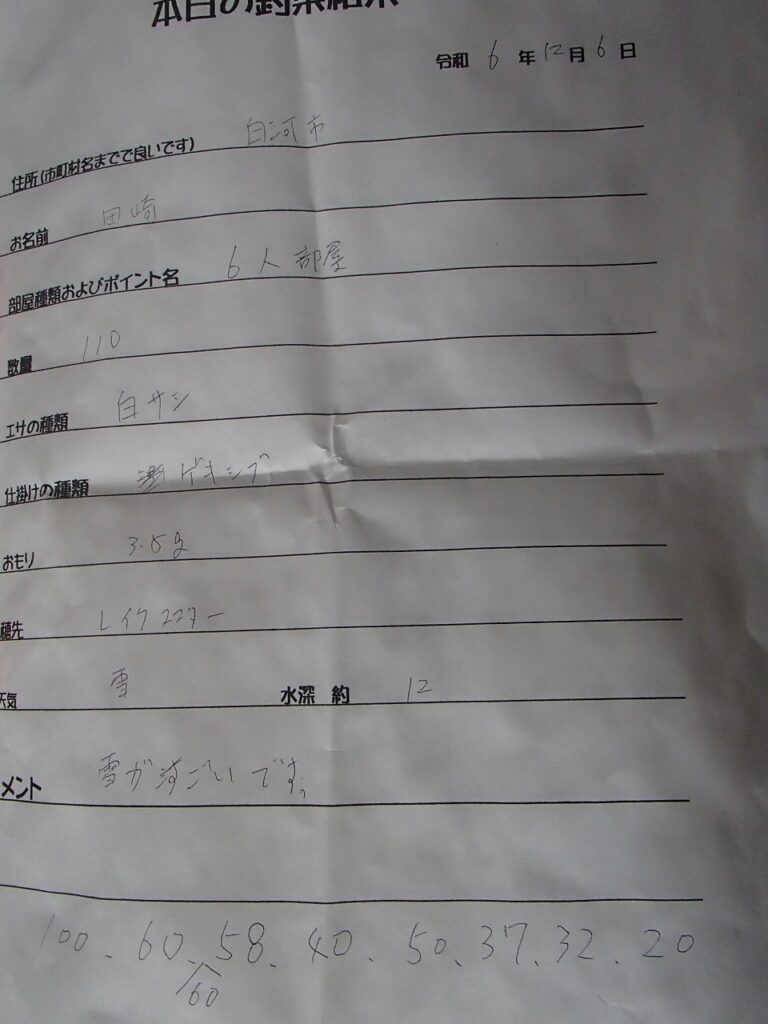 本日の釣果結果
令和 6 年 12 月 6 日
住所(市町村名までで良いです) 白河市
お名前 田崎
部屋種類およびポイント名 6人部屋
数量 110
エサの種類 白サシ
仕掛けの種類 ゲキシブ
おもり 3.5g
穂先 レイクマスター
天気 雪 水深 約 12
メント 雪がすごいです。
100、60、58、40、50、37、32、20
60